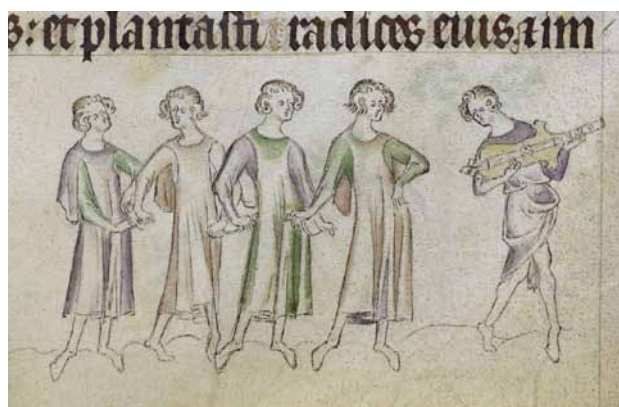 s: et plantasti radices eius, ⁊ im